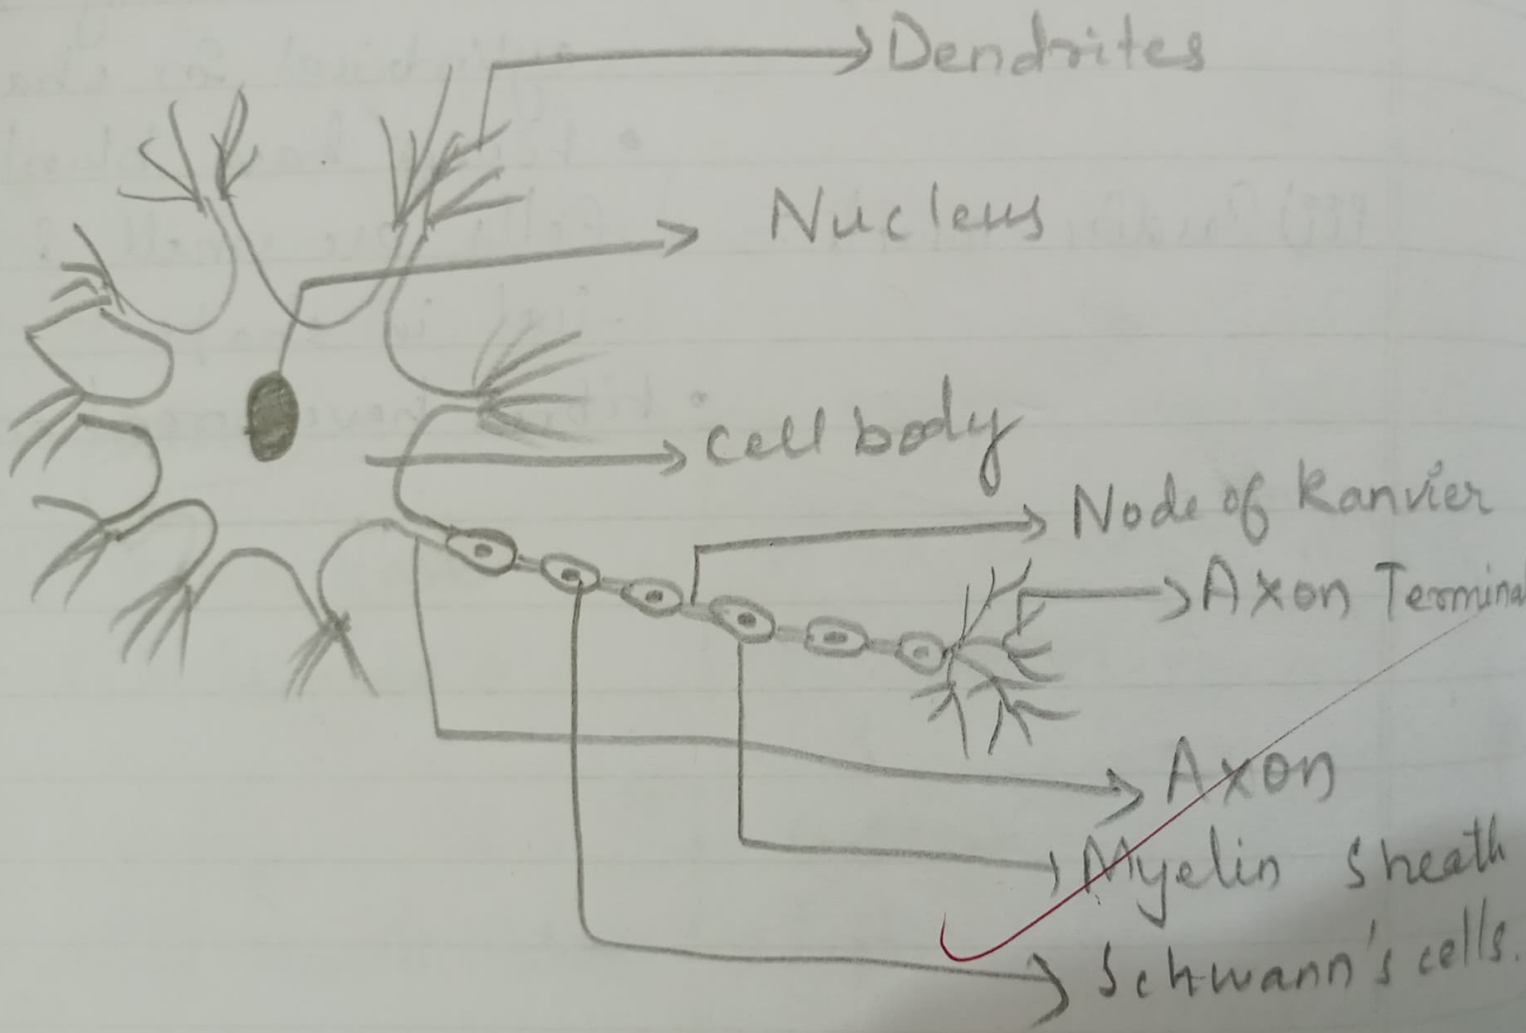 Dendrites
Nucleus
Cell body
Node of Ranvier
Axon Terminal
Axon
Myelin Sheath
Schwann's cells.